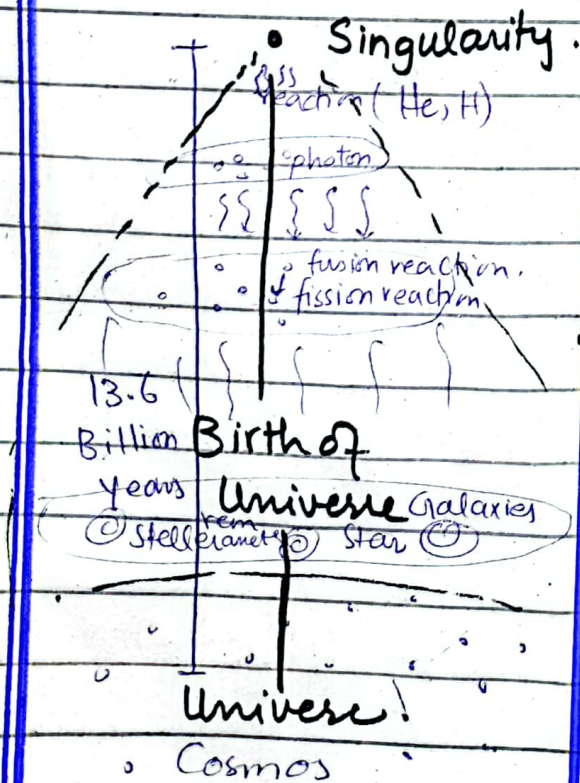 Singularity.
reaction (He, H)
photon
fusion reaction.
fission reaction
13.6
Billion
years
Birth of
Universe
Galaxies
Star
Universe!
Cosmos